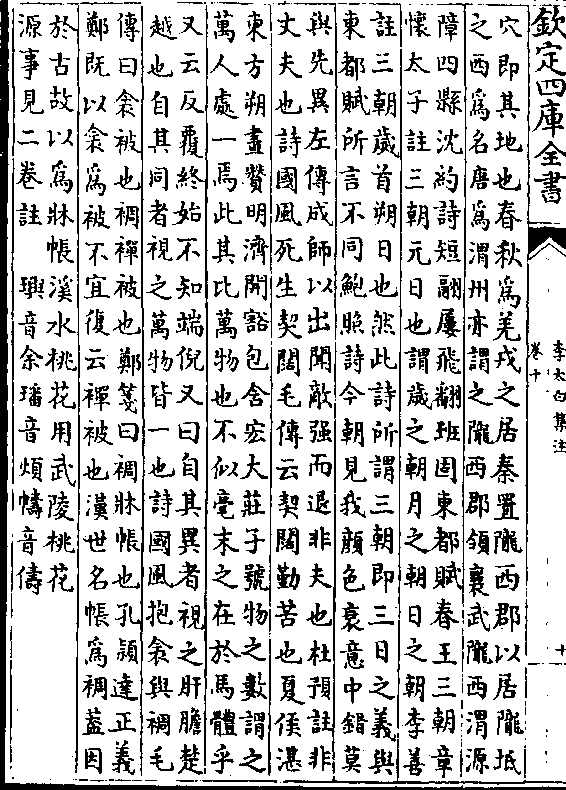 欽定四庫全書
李太白集注
卷十
十
穴即其地也春秋為羌戎之居秦置隴西郡以居隴坻
之西為名唐為渭州亦謂之隴西郡領襄武隴西渭源
障四縣沈約詩短翮屢飛翻班固東都賦春王三朝章
懷太子註三朝元日也謂歲之朝月之朝日之朝李善
註三朝歲首朔日也然此詩所謂三朝即三日之義與
東都賦所言不同鮑照詩今朝見我顏色衰意中錯莫
與先異左傳成師以出聞敵强而退非夫也杜預註非
丈夫也詩國風死生契闊毛傳云契闊勤苦也夏侯湛
東方朔畫贊明濟開豁包含宏大莊子號物之數謂之
萬人處一焉此其比萬物也不似毫末之在於馬體乎
又云反覆終始不知端倪又曰自其異者視之肝膽楚
越也自其同者視之萬物皆一也詩國風抱衾與裯毛
傳曰衾被也裯襌被也鄭箋曰裯牀帳也孔穎達正義
鄭既以衾為被不宜復云襌被也漢世名帳為裯蓋因
於古故以為牀帳溪水桃花用武陵桃花
源事見二卷註 璵音余璠音煩幬音儔